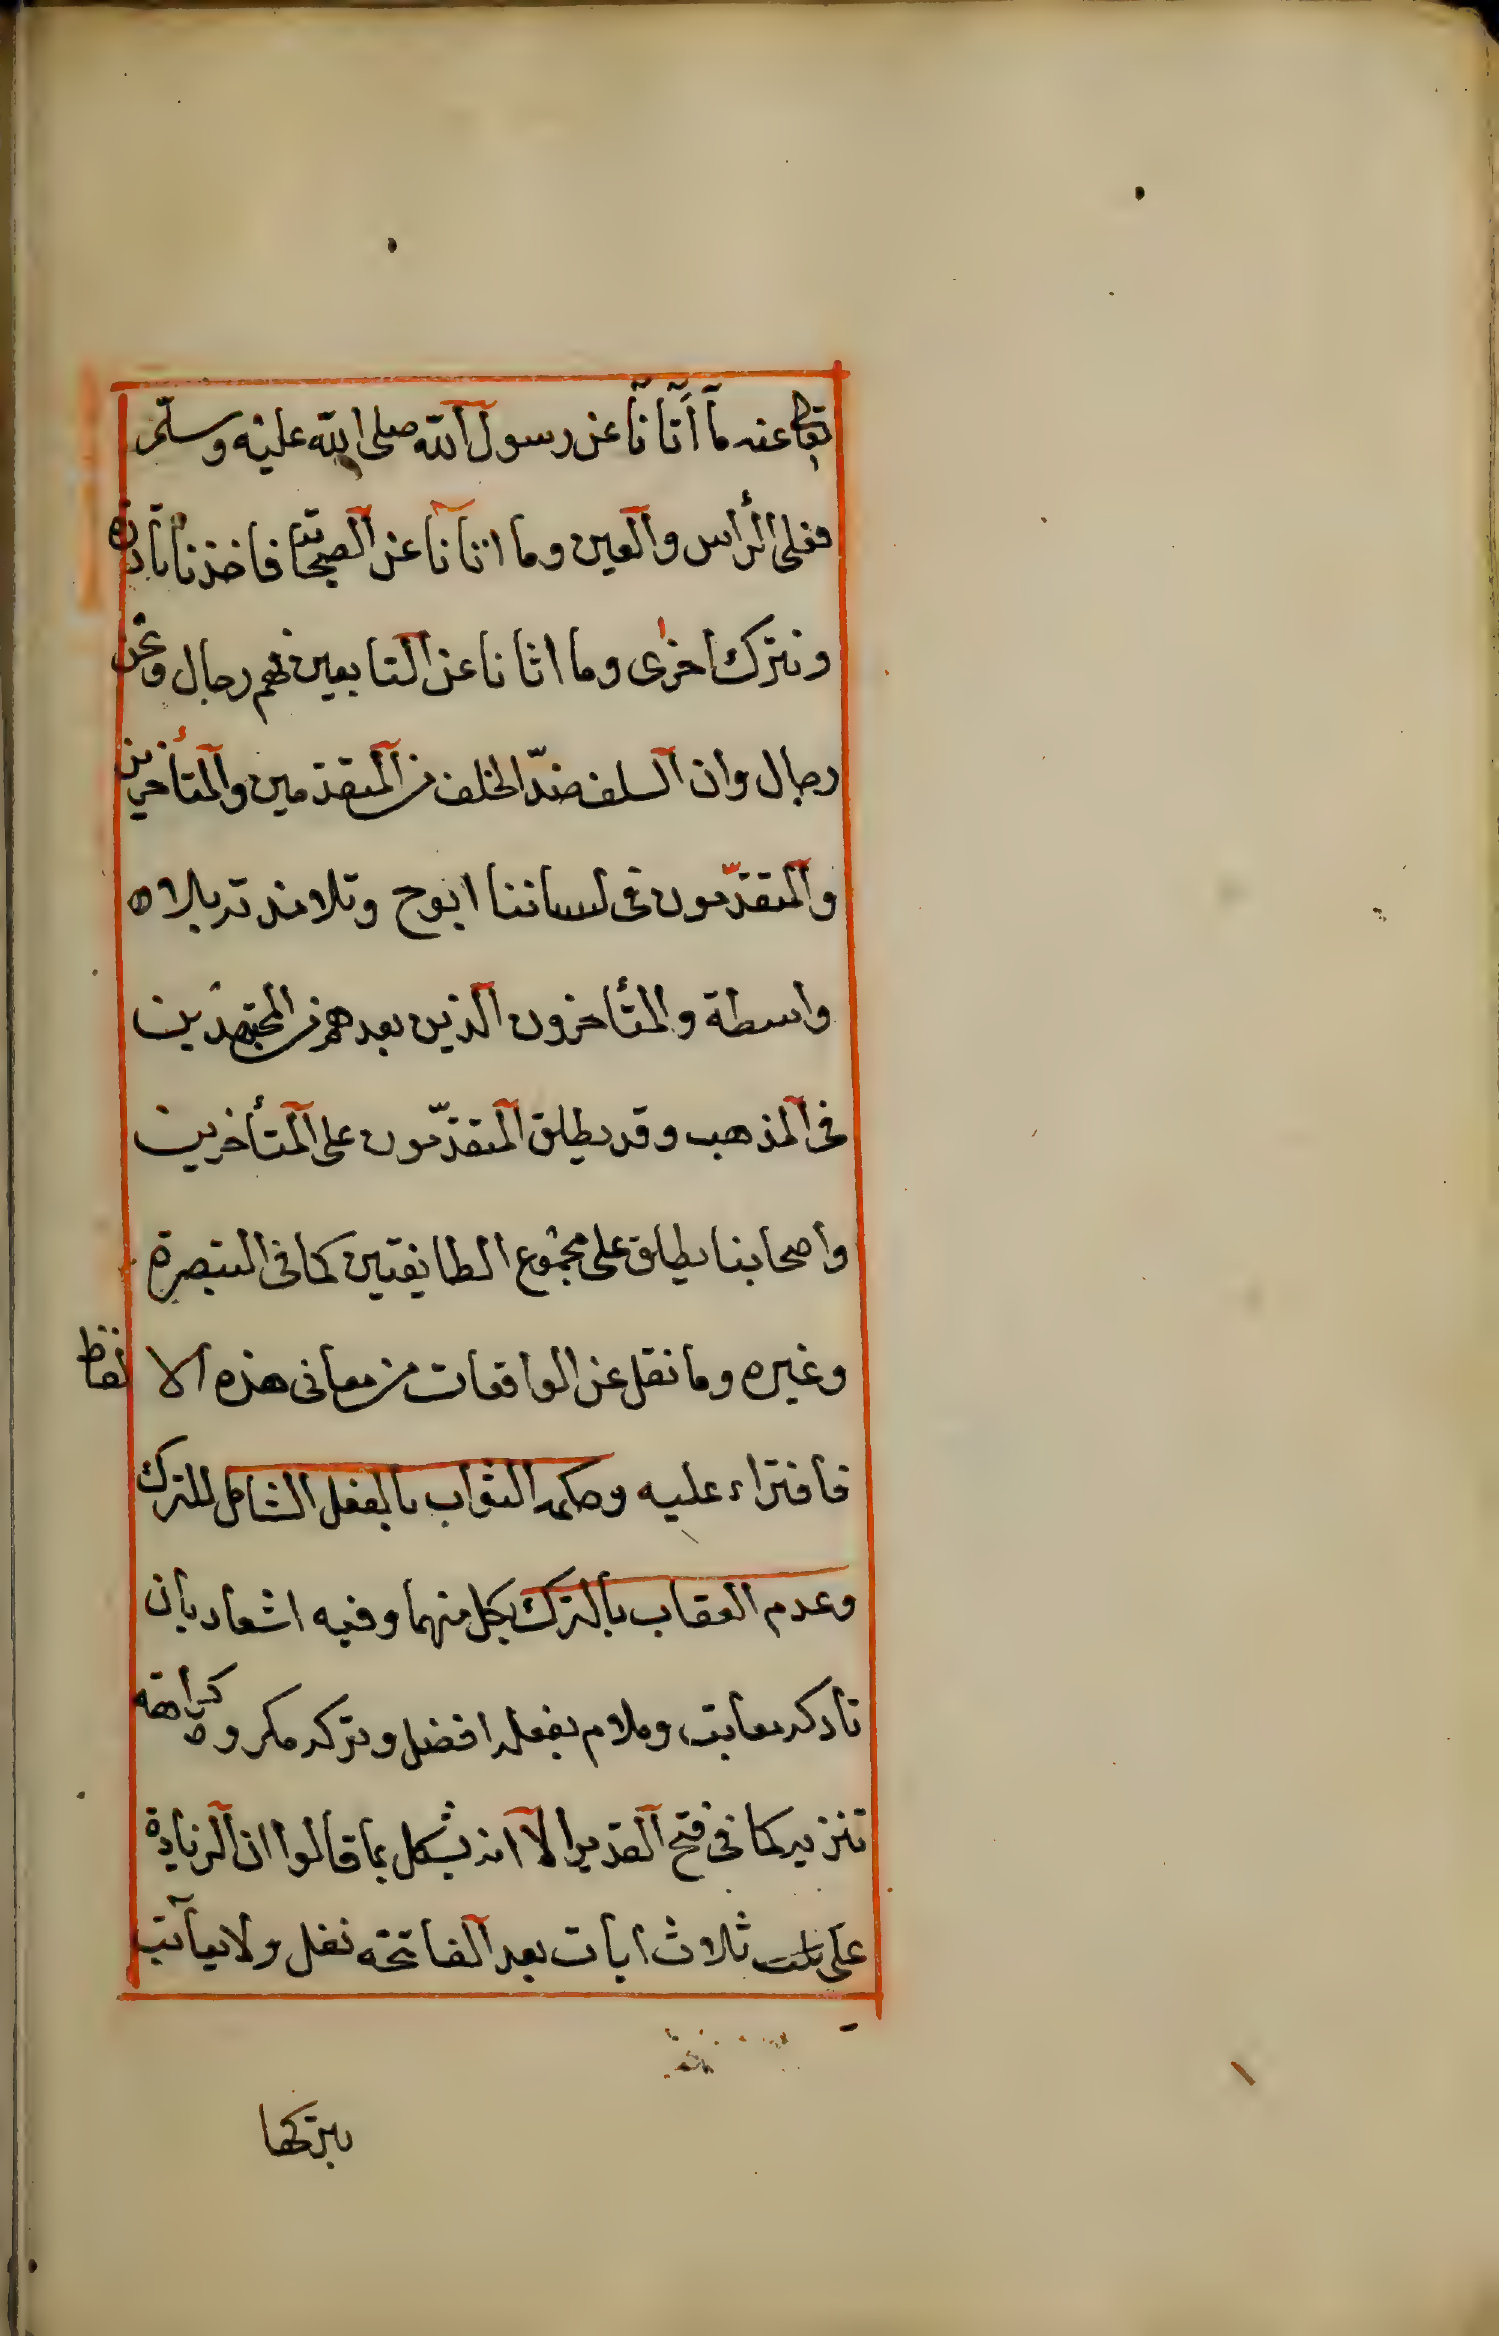 تعالى عنه ما أتانا عن رسول الله صلى الله عليه وسلم
فعلى الرأس والعين وما اتانا عن الصحابة فاخذنا تارة
ونترك اخرى وما اتانا عن التابعين فهم رجال ونحن
رجال وان السلف ضدّ الخلف من المتقدمين والمتأخرين
والمتقدّمون في لساننا ابوح وتلامذته بلا
واسطة والمتأخرون الذين بعدهم من المجتهدين
في المذهب وقد يطلق المتقدّمون على المتأخرين
واصحابنا يطلق على مجموع الطايفتين كما في التبصرة
وغيره وما نقل عن الواقعات من معاني هذه الالفاظ
فافتراء عليه وحكمه الثواب بالفعل الشامل للترك
وعدم العقاب بالترك بكل منهما وفيه اشعار بان
تاركه معاتب وملام بفعله افضل وتركه مكروه كراهة
تنزيه كما في فتح القدير الا انه يشكل بما قالوا ان الزيادة
على ثلاث ايات بعد الفاتحة نفل ولا يعاتب
بتركها